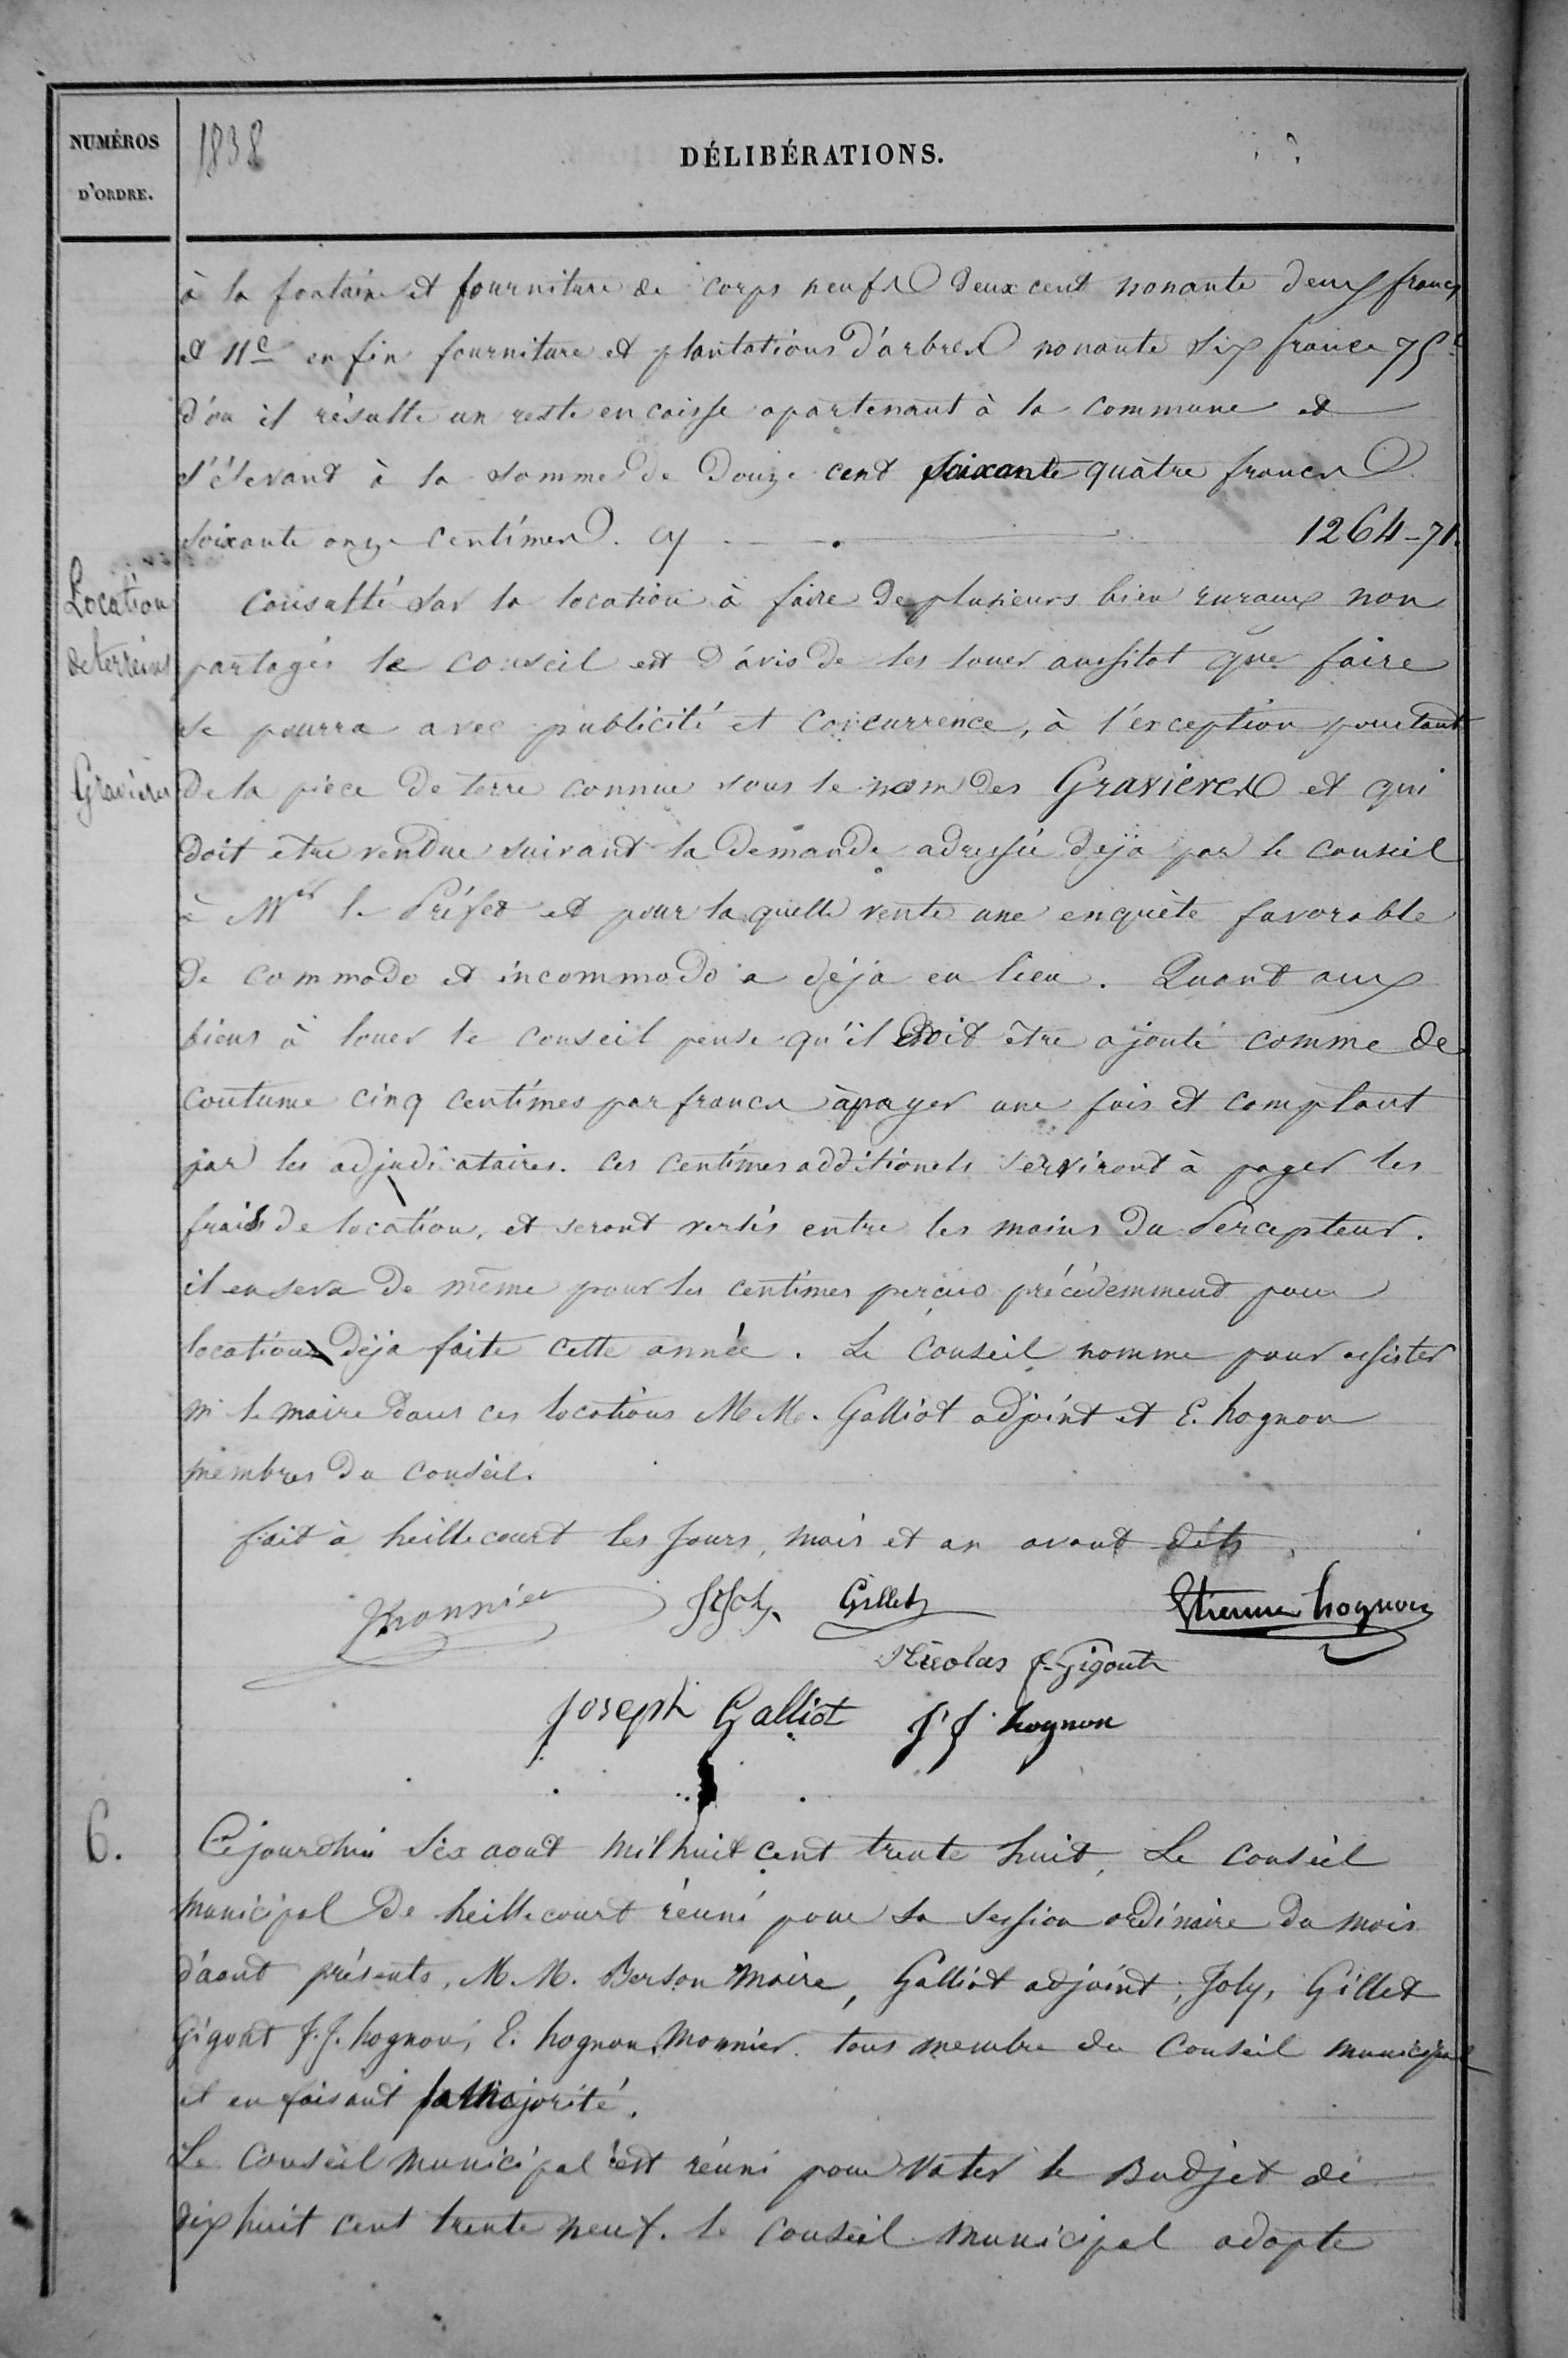 NUMÉROS
D'ORDRE.
1838
DÉLIBÉRATIONS.
à la fontaine et fourniture de corps neufs deux cent nonante deux francs
et 11c enfin fourniture et plantations d'arbres nonante six francs 75c
d'ou il résulte un reste en caisse apartenant à la commune et
s'élevant à la somme de Douze cent soixante quatre francs
soixante onze centimes. cy 1264-71.
Location
de terreins
Consulté sur la location à faire de plusieurs bien ruraux non
partagés le conseil est d'avis de les louer aussitot que faire
se pourra avec publicité et concurrence, à l'exception pourtant
Gravières
de la pièce de terre connue sous le nom des Gravieres et qui
doit etre vendue suivant la demande adressée déja par le conseil
à Mr le Préfet et pour laquelle vente une enquète favorable
de commodo et incommodo a déja eu lieu. Quant aux
biens à louer le conseil pense qu'il doit être ajouté comme de
coutume cinq centimes par francs à payer une fois et comptant
par les adjudicataires. ces centimes additionels serviront à payer les
frais de location, et seront versés entre les mains du Percepteur.
il en sera de même pour les centimes perçus précédemment pour
location déja faite cette année. Le Conseil nomme pour assister
mr le maire dans ces locations M.M. Galliot adjoint et E. hognon
membres du conseil.
fait à heillecourt les Jours, mois et an avant dits.
Jmonnier JfJoly Gillet Etienne hognon
Nicolas f. Gigout
Joseph Galliot J J hognon
6.
Cejourdhui six aout mil huit cent trente huit, Le Conseil
municipal de heillecourt réuni pour sa session ordinaire du mois
d'aout présents, M.M. Berson maire, Galliot adjoint, Joly, Gillet
Gigout J.J. hognon, E. hognon, Monnier. tous membre du Conseil municipal
et en faisant la majorité.
Le Conseil municipal s'est réuni pour voter le Budjet de
dix huit cent trente neuf. le Conseil municipal adopte